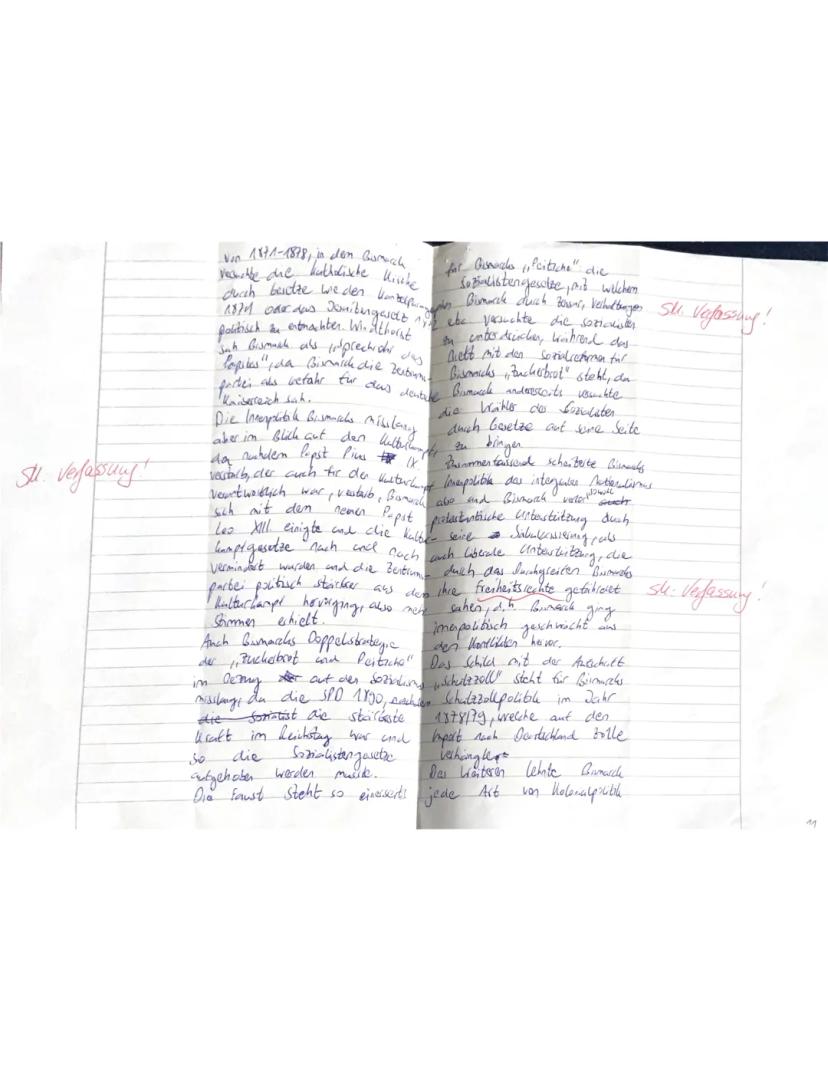 von 1871-1878, in dem Bismarck
versuchte die katholische Kirche
durch Gesetze wie den Kanzelparagraphen
1871 oder das Jesuitengesetz 1872
politisch zu entmachten. Windthorst
sah Bismarck als "Sprachrohr des
Papstes", da Bismarck die Zentrums-
partei als Gefahr für das deutsche
Kaiserreich sah.
Die Innenpolitik Bismarcks misslang
aber im Blick auf den Kulturkampf,
da nachdem Papst Pius IX
verstarb, der auch für den Kulturkampf
verantwortlich war, verstarb, Bismarck
sich mit dem neuen Papst
Leo XIII. einigte und die Kultur-
kampfgesetze nach und nach
vermindert wurden und die Zentrums-
partei politisch stärker aus dem
Kulturkampf hervorging, also mehr
Stimmen erhielt.
Auch Bismarcks Doppelstrategie
der "Zuckerbrot und Peitsche"
im Bezug auf den Sozialismus
misslang, da die SPD 1890,
die Sozialist die stärkste
Kraft im Reichstag war und
so die Sozialistengesetze
aufgehoben werden musste.
Die Faust steht so einerseits
Sk. Verfassung!
für Bismarcks "Peitsche" die
Sozialistengesetze, mit welchem
Bismarck durch Zensur, Verhaftungen
etc. versuchte die Sozialisten
zu unterdrücken, während das
Brett mit den Sozialreformen für
Bismarcks "Zuckerbrot" steht, da
Bismarck andererseits versuchte
die Wähler der Sozialisten
durch Gesetze auf seine Seite
zu bringen.
Zusammenfassend scheiterte Bismarcks
Innenpolitik des integralen Nationalismus
also und Bismarck verlor sowohl auch
protestantische Unterstützung durch
seine Säkularisierung, als
auch liberale Unterstützung, die
durch das Durchgreifen Bismarcks
ihre Freiheitsrechte gefährdet
sahen, d.h. Bismarck ging
innenpolitisch geschwächt aus
den Konflikten hervor.
Das Schild mit der Aufschrift
"Schutzzoll" steht für Bismarcks
Schutzzollpolitik im Jahr
1878/79, welche auf den
Import nach Deutschland Zölle
verhängte.
Des Weiteren lehnte Bismarck
jede Art von Kolonialpolitik
Sk. Verfassung!
Sk. Verfassung!
11